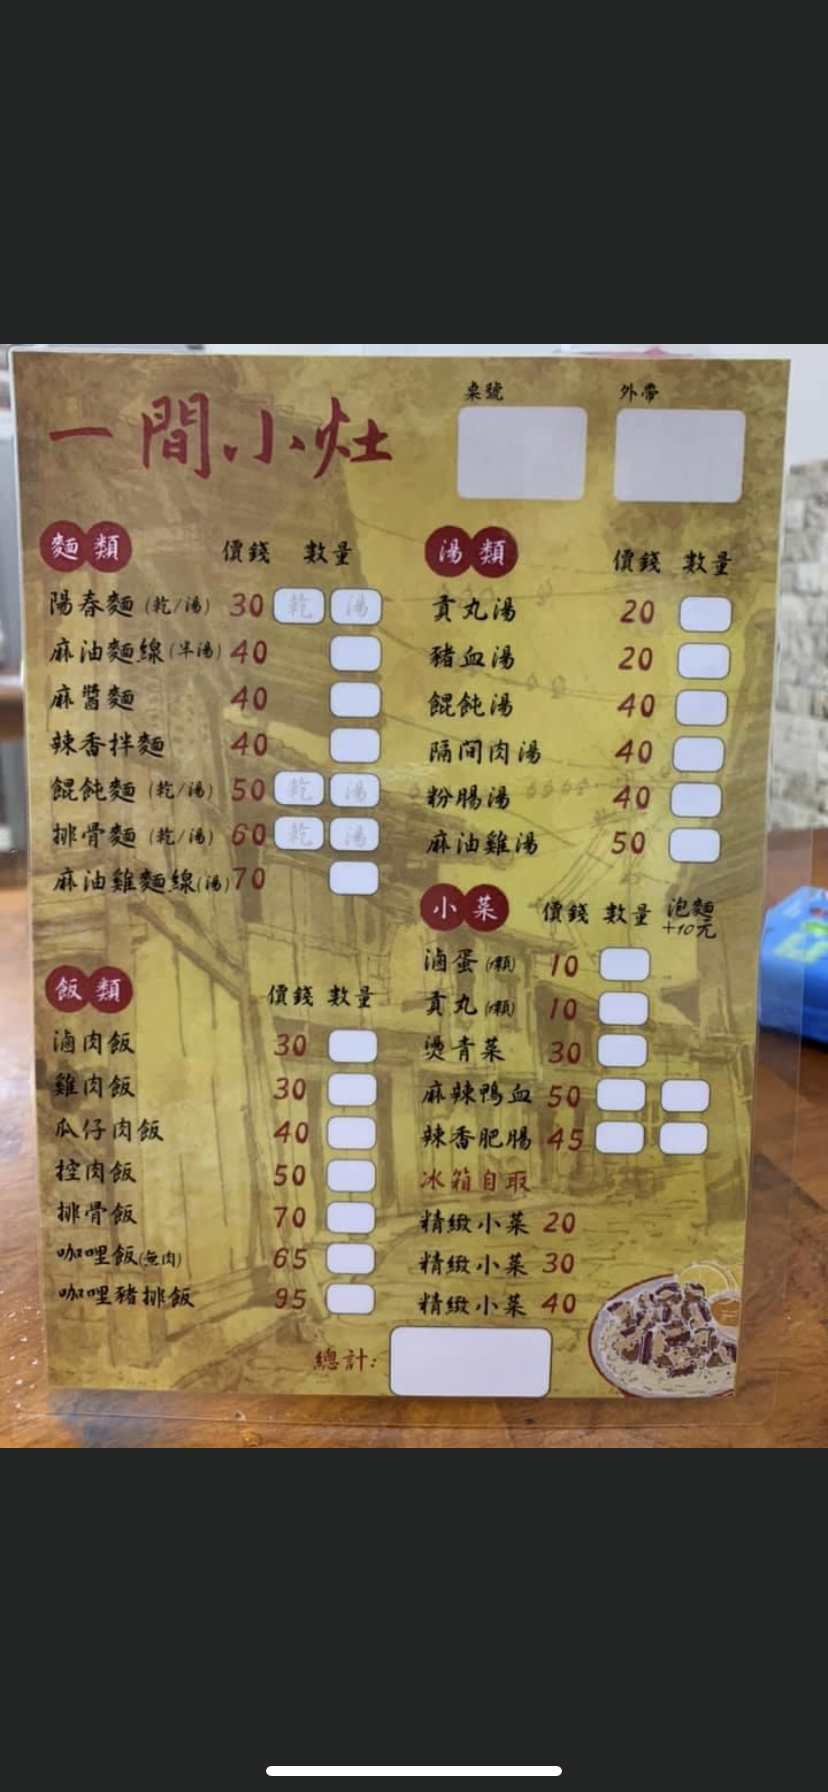 一間小灶
桌號 外帶
麵類 價錢 數量
陽春麵(乾/湯) 30 乾 湯
麻油麵線(半湯) 40
麻醬麵 40
辣香拌麵 40
餛飩麵(乾/湯) 50 乾 湯
排骨麵(乾/湯) 60 乾 湯
麻油雞麵線(湯) 70
飯類 價錢 數量
滷肉飯 30
雞肉飯 30
瓜仔肉飯 40
控肉飯 50
排骨飯 70
咖哩飯(無肉) 65
咖哩豬排飯 95
湯類 價錢 數量
貢丸湯 20
豬血湯 20
餛飩湯 40
隔间肉湯 40
粉腸湯 40
麻油雞湯 50
小菜 價錢 數量 泡麵
+10元
滷蛋(1顆) 10
貢丸(1顆) 10
燙青菜 30
麻辣鴨血 50
辣香肥腸 45
冰箱自取
精緻小菜 20
精緻小菜 30
精緻小菜 40
總計: